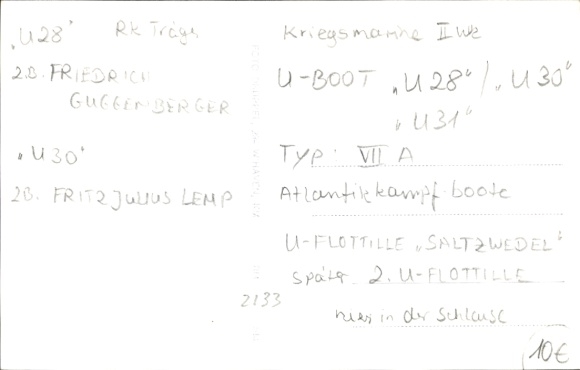 „U28“ RK Träger
z.B. FRIEDRICH
GUGGENBERGER
„U30“
z.B. FRITZ JULIUS LEMP
Kriegsmarine II WK
U-BOOT „U28“/„U30“
„U31“
Typ: VII A
Atlantikkampfboote
U-FLOTTILLE „SALTZWEDEL“
später 2. U-FLOTTILLE
hier in der Schleuse
2133
10€